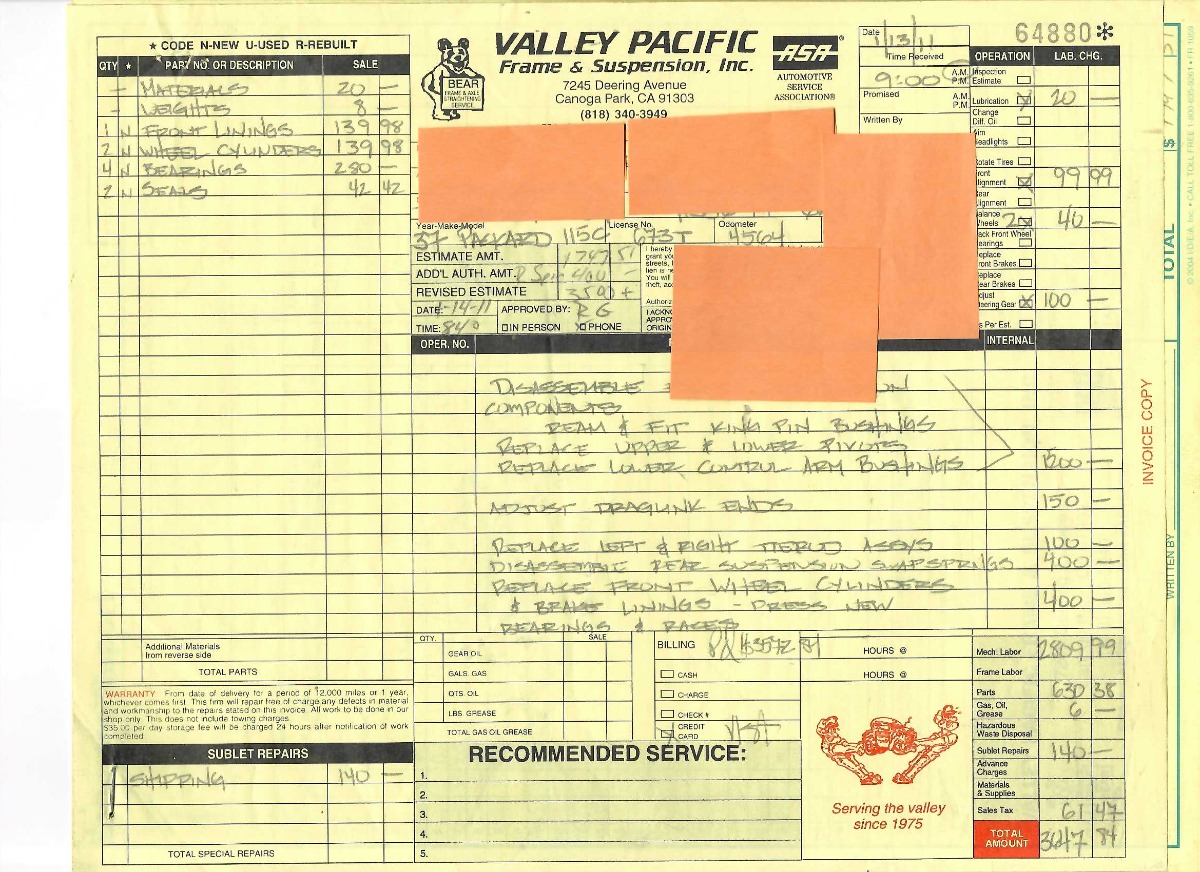 ★ CODE N-NEW U-USED R-REBUILT
QTY ★ PART NO. OR DESCRIPTION SALE
— MATERIALS 20 —
— WEIGHTS 8 —
1 N FRONT LININGS 139 98
2 N WHEEL CYLINDERS 139 98
4 N BEARINGS 280 —
2 N SEALS 42 42
Additional Materials
from reverse side
TOTAL PARTS
WARRANTY From date of delivery for a period of 12,000 miles or 1 year,
whichever comes first. This firm will repair free of charge any defects in material
and workmanship to the repairs stated on this invoice. All work to be done in our
shop only. This does not include towing charges.
$35.00 per day storage fee will be charged 24 hours after notification of work
completed.
SUBLET REPAIRS
SHIPPING 140 —
TOTAL SPECIAL REPAIRS
BEAR
FRAME & AXLE
STRAIGHTENING
SERVICE
VALLEY PACIFIC
Frame & Suspension, Inc.
7245 Deering Avenue
Canoga Park, CA 91303
(818) 340-3949
ASA
AUTOMOTIVE
SERVICE
ASSOCIATION®
Date 1/13/11
Time Received
9:00 A.M.
P.M.
Promised A.M.
P.M.
Written By
64880*
Year-Make-Model License No. Odometer
37 PACKARD 115C 673T 4564
ESTIMATE AMT.
ADD'L AUTH. AMT.
REVISED ESTIMATE 3500 +
DATE: 1-14-11 APPROVED BY: RG
TIME: 840 IN PERSON PHONE
I hereby
grant you
streets,
lien is he
You will
theft, acc
Authoriz
I ACKNO
APPROV
ORIGIN
OPERATION LAB. CHG.
Inspection
Estimate
Lubrication 20 —
Change
Diff. Oil
Aim
Headlights
Rotate Tires
Front
Alignment 99 99
Rear
Alignment
Balance
Wheels 2 40 —
Pack Front Wheel
Bearings
Replace
Front Brakes
Replace
Rear Brakes
Adjust
Steering Gear 100 —
As Per Est.
OPER. NO. INTERNAL
DISASSEMBLE
COMPONENTS
REAM & FIT KING PIN BUSHINGS
REPLACE UPPER & LOWER PIVOTS
REPLACE LOWER CONTROL ARM BUSHINGS 1200 —
ADJUST DRAGLINK ENDS 150 —
REPLACE LEFT & RIGHT TIEROD ASSYS 100 —
DISASSEMBLE REAR SUSPENSION SWAP SPRINGS 400 —
REPLACE FRONT WHEEL CYLINDERS
& BRAKE LININGS - PRESS NEW 400 —
BEARINGS & RACES
QTY. SALE
GEAR OIL
GALS. GAS
QTS. OIL
LBS. GREASE
TOTAL GAS OIL GREASE
BILLING
CASH
CHARGE
CHECK #
CREDIT
CARD VISA
HOURS @
HOURS @
RECOMMENDED SERVICE:
1.
2.
3.
4.
5.
Serving the valley
since 1975
Mech. Labor 2809 99
Frame Labor
Parts 630 38
Gas, Oil,
Grease 6 —
Hazardous
Waste Disposal
Sublet Repairs 140 —
Advance
Charges
Materials
& Supplies
Sales Tax 61 47
TOTAL
AMOUNT 3647 84
INVOICE COPY
WRITTEN BY
TOTAL
$